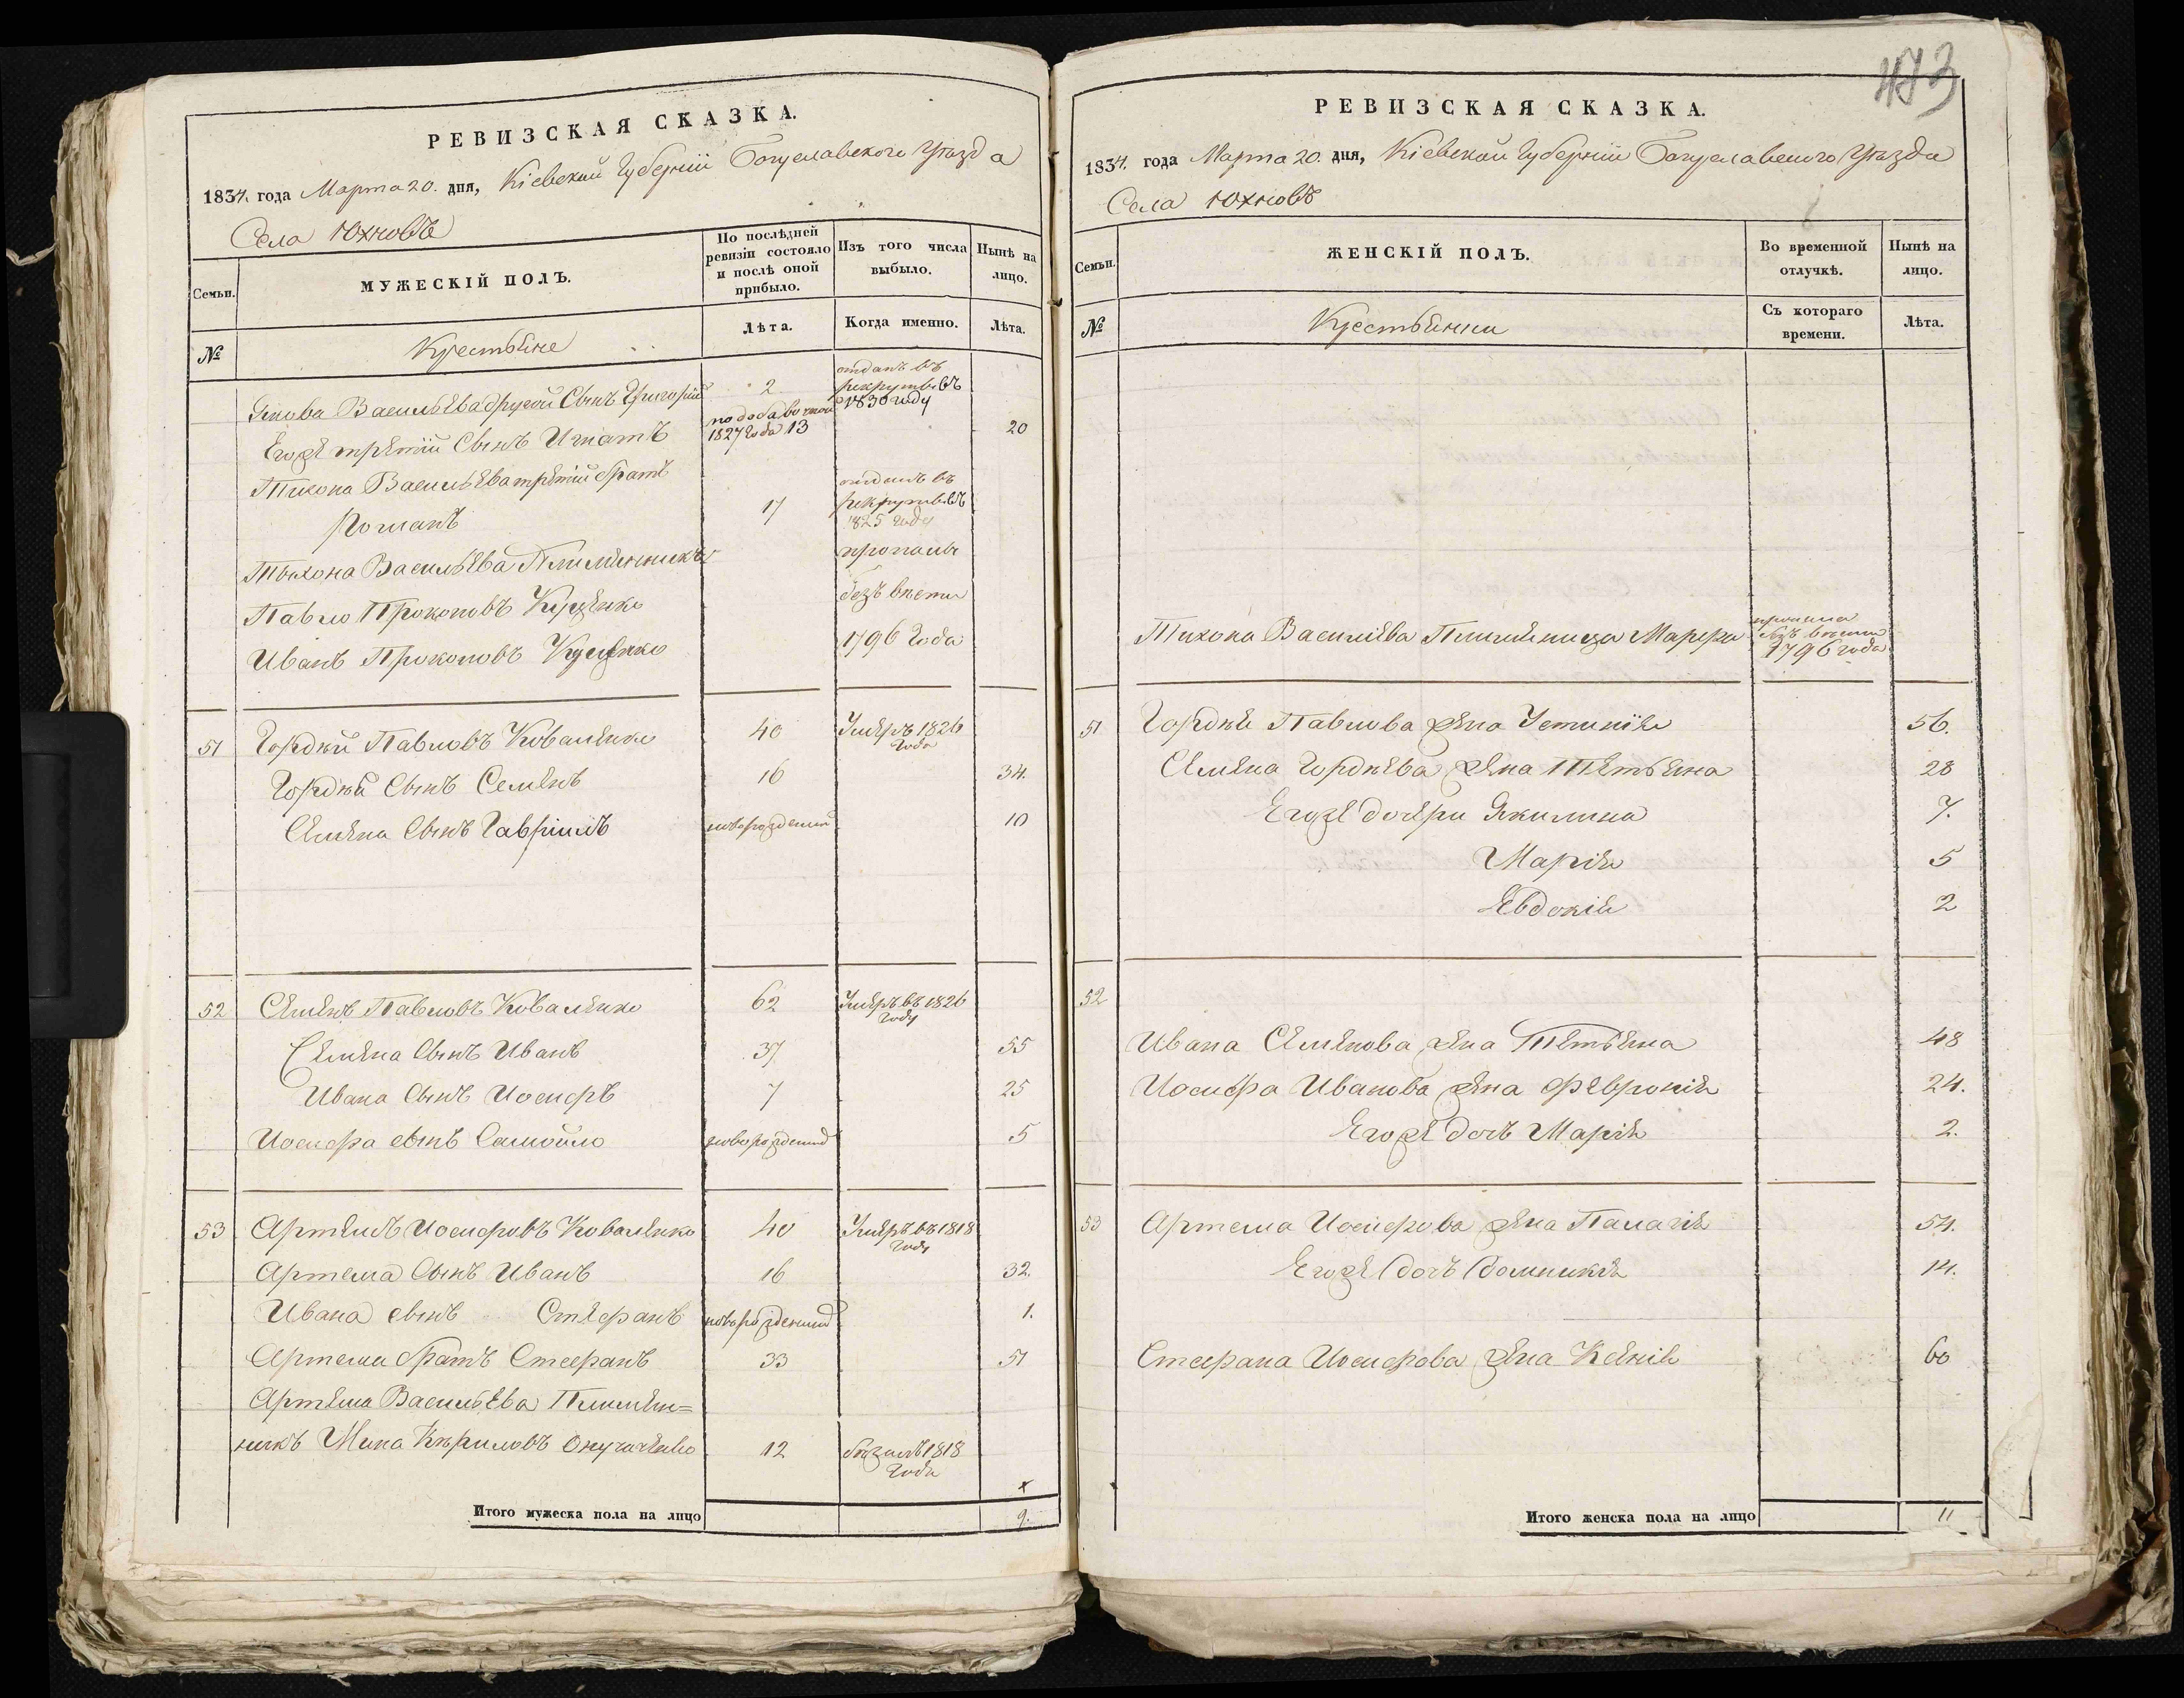 РЕВИЗСКАЯ СКАЗКА.
1834. года Марта 20. дня, Кіевской Губерніи Богуславского Уѣзда
Села Юхновъ
Семьи.
МУЖЕСКІЙ ПОЛЪ.
По послѣдней ревизіи состояло и послѣ оной прибыло.
Изъ того числа выбыло.
Нынѣ на лицо.
№
Крестьяне
Лѣта.
Когда именно.
Лѣта.
Якова Васильева другой Сынъ Григорій 2 отданъ въ рекруты въ 1830 году
Егоже третій Сынъ Игнатъ по добавочной 1827 года 13 20
Тихона Васильева третій братъ
Романъ 17 отданъ въ рекруты въ 1825 году
Тихона Васильева Племенники пропали
Павло Прокоповъ Куценко безъ вѣсти
Иванъ Прокоповъ Куценко 1796 Года
51 Гордѣй Павловъ Коваленко 40 Умеръ 1826 Года
Гордѣя Сынъ Семенъ 16 34.
Семена Сынъ Гавріилъ новорожденый 10
52 Семенъ Павловъ Коваленко 62 Умеръ въ 1826 Году
Семена Сынъ Иванъ 37 55
Ивана Сынъ Иосифъ 7 25
Иосифа сынъ Самойло новорожденый 5
53 Артемъ Иосифовъ Коваленко 40 Умеръ въ 1818 Году
Артема Сынъ Иванъ 16 32.
Ивана сынъ Стефанъ новорожденый 1.
Артема братъ Стефанъ 33 51
Артема Васильева Племен=
никъ Мина Кириловъ 12 бѣжалъ 1818 Года
Итого мужеска пола на лицо 9.
473
РЕВИЗСКАЯ СКАЗКА.
1834. года Марта 20. дня, Кіевской Губерніи Богуславского Уѣзда
Села Юхновъ
Семьи.
ЖЕНСКІЙ ПОЛЪ.
Во временной отлучкѣ.
Нынѣ на лицо.
№
Крестьянки
Съ котораго времени.
Лѣта.
Тихона Василіева Племеница Марфа пропала безъ вѣсти 1796 года
51 Гордѣя Павлова жена Устинія 56.
Семена Гордѣева жена Тетьяна 28
Егоже дочери Якилина 7.
Марія 5
Евдокія 2
52
Ивана Семенова жена Тетьяна 48
Иосифа Иванова жена Февронія 24.
Егоже дочь Марія 2.
53 Артема Иосифова жена Палагія 54.
Егоже дочь Домникія 14.
Стефана Иосифова жена Ксенія 60
Итого женска пола на лицо 11